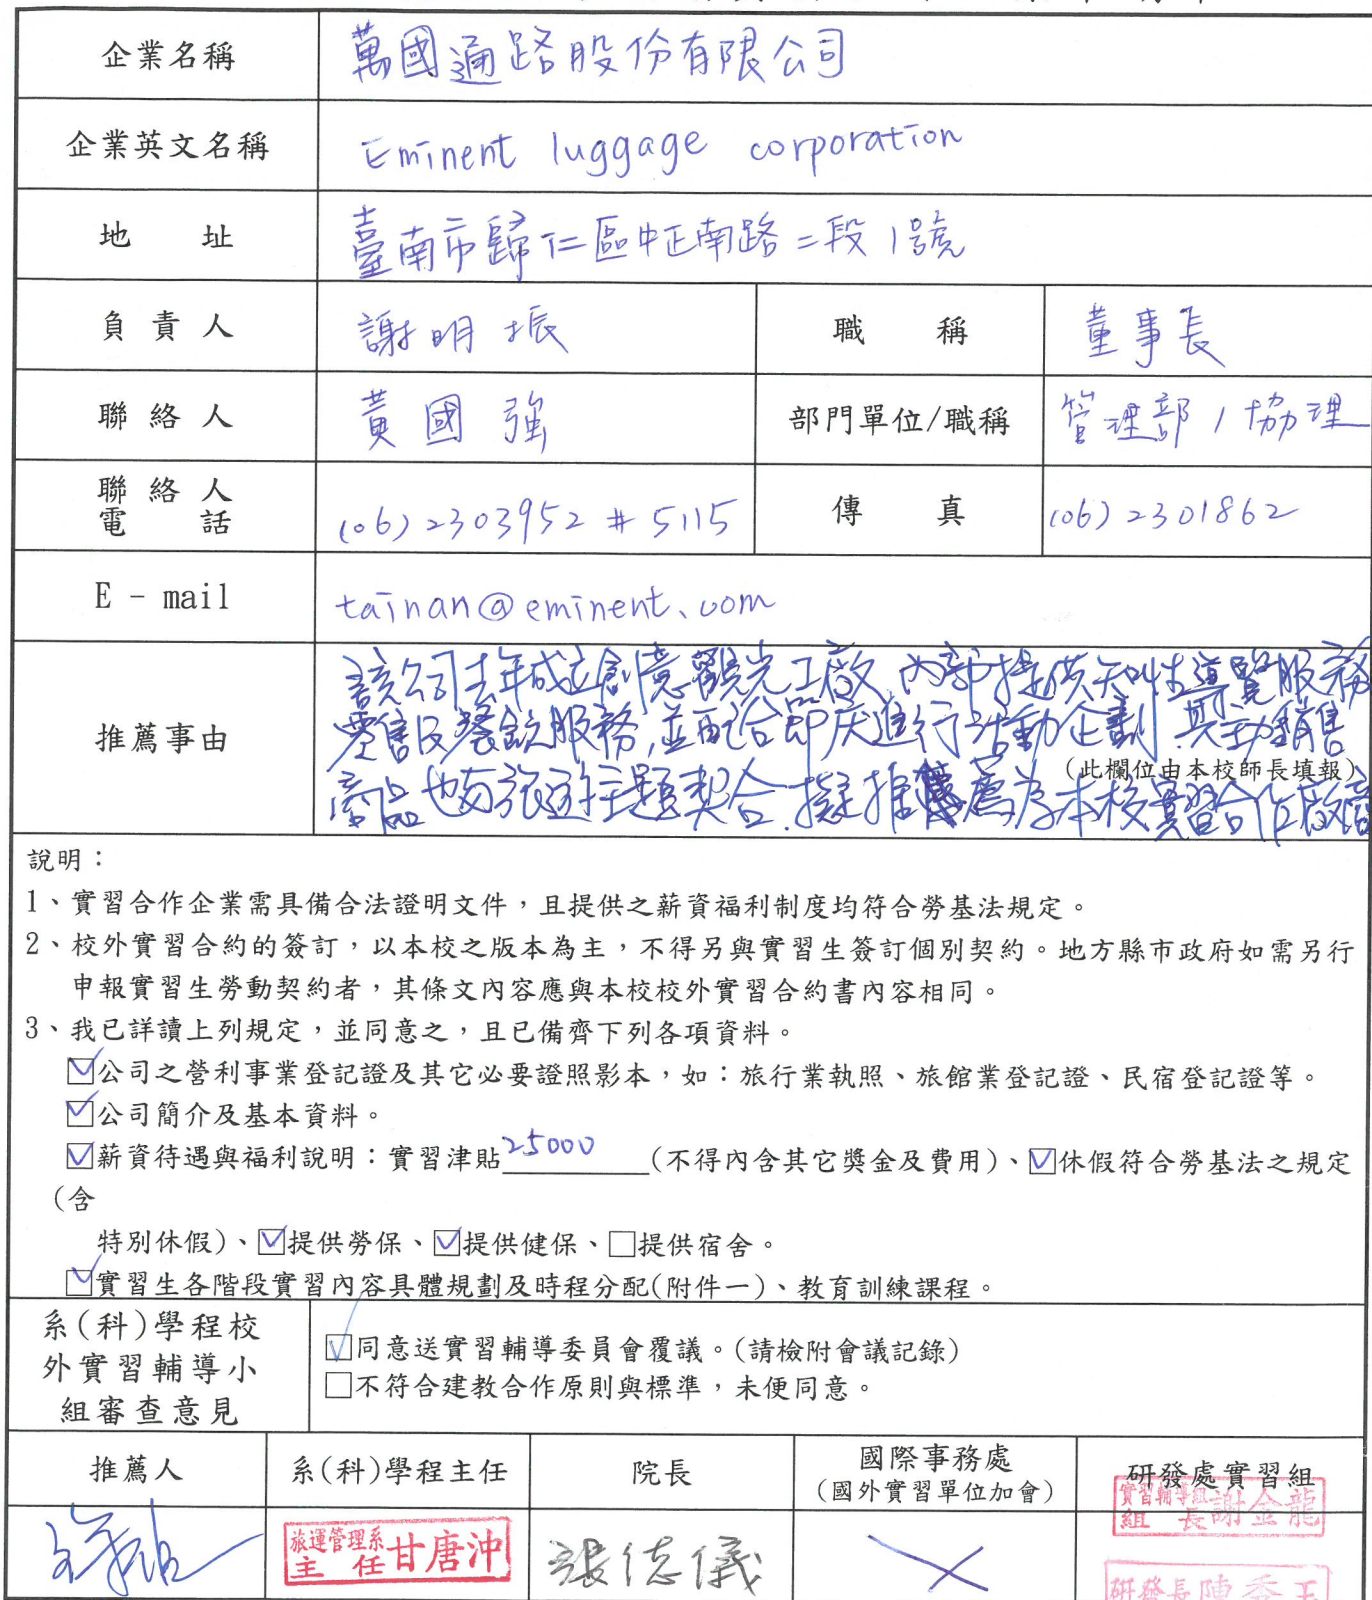 企業名稱 萬國通路股份有限公司
企業英文名稱 Eminent luggage corporation
地 址 臺南市歸仁區中正南路二段1號
負責人 謝明振 職 稱 董事長
聯絡人 黃國強 部門單位/職稱 管理部/協理
聯絡人電話 (06)2303952#5115 傳 真 (06)2301862
E - mail tainan@eminent.com
該公司去年成立創意觀光工廠,內部提供知性導覽服務
推薦事由 零售及餐飲服務,並配合節慶進行活動企劃.其主動銷售
(此欄位由本校師長填報)
商品也與旅遊主題契合.擬推薦為本校實習合作廠商
說明:
1、實習合作企業需具備合法證明文件,且提供之薪資福利制度均符合勞基法規定。
2、校外實習合約的簽訂,以本校之版本為主,不得另與實習生簽訂個別契約。地方縣市政府如需另行
申報實習生勞動契約者,其條文內容應與本校校外實習合約書內容相同。
3、我已詳讀上列規定,並同意之,且已備齊下列各項資料。
☑公司之營利事業登記證及其它必要證照影本,如:旅行業執照、旅館業登記證、民宿登記證等。
☑公司簡介及基本資料。
☑薪資待遇與福利說明:實習津貼25000(不得內含其它獎金及費用)、☑休假符合勞基法之規定
(含
特別休假)、☑提供勞保、☑提供健保、□提供宿舍。
☑實習生各階段實習內容具體規劃及時程分配(附件一)、教育訓練課程。
系(科)學程校
外實習輔導小
組審查意見
☑同意送實習輔導委員會覆議。(請檢附會議記錄)
□不符合建教合作原則與標準,未便同意。
推薦人 系(科)學程主任 院長 國際事務處 研發處實習組
(國外實習單位加會)
實習輔導組組長謝金龍
旅運管理系主任甘唐沖 張德儀
研發長陳秀玉